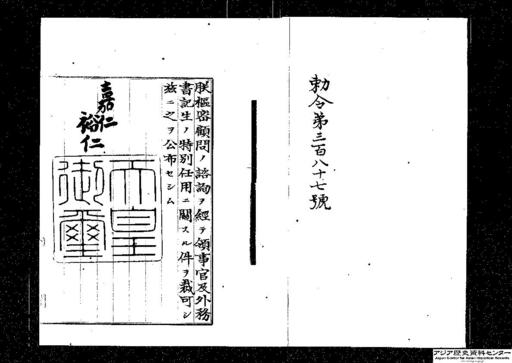 勅令第三百八十七號
朕樞密顧問ノ諮詢ヲ經テ領事官及外務
書記生ノ特別任用ニ關スル件ヲ裁可シ
玆ニ之ヲ公布セシム
嘉仁
裕仁
天皇
御璽
アジア歴史資料センター
Japan Center for Asian Historical Records